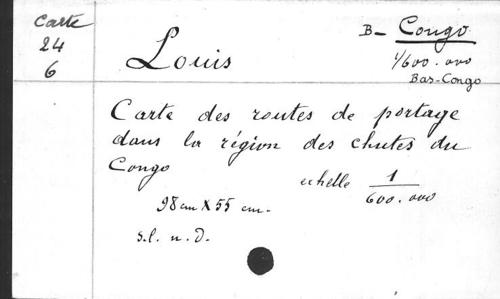 Carte
24
6
Louis
B- Congo
1/600.000
Bas-Congo
Carte des routes de portage
dans la région des chutes du
Congo
echelle 1/600.000
98 cm X 55 cm.
s.l. n.d.